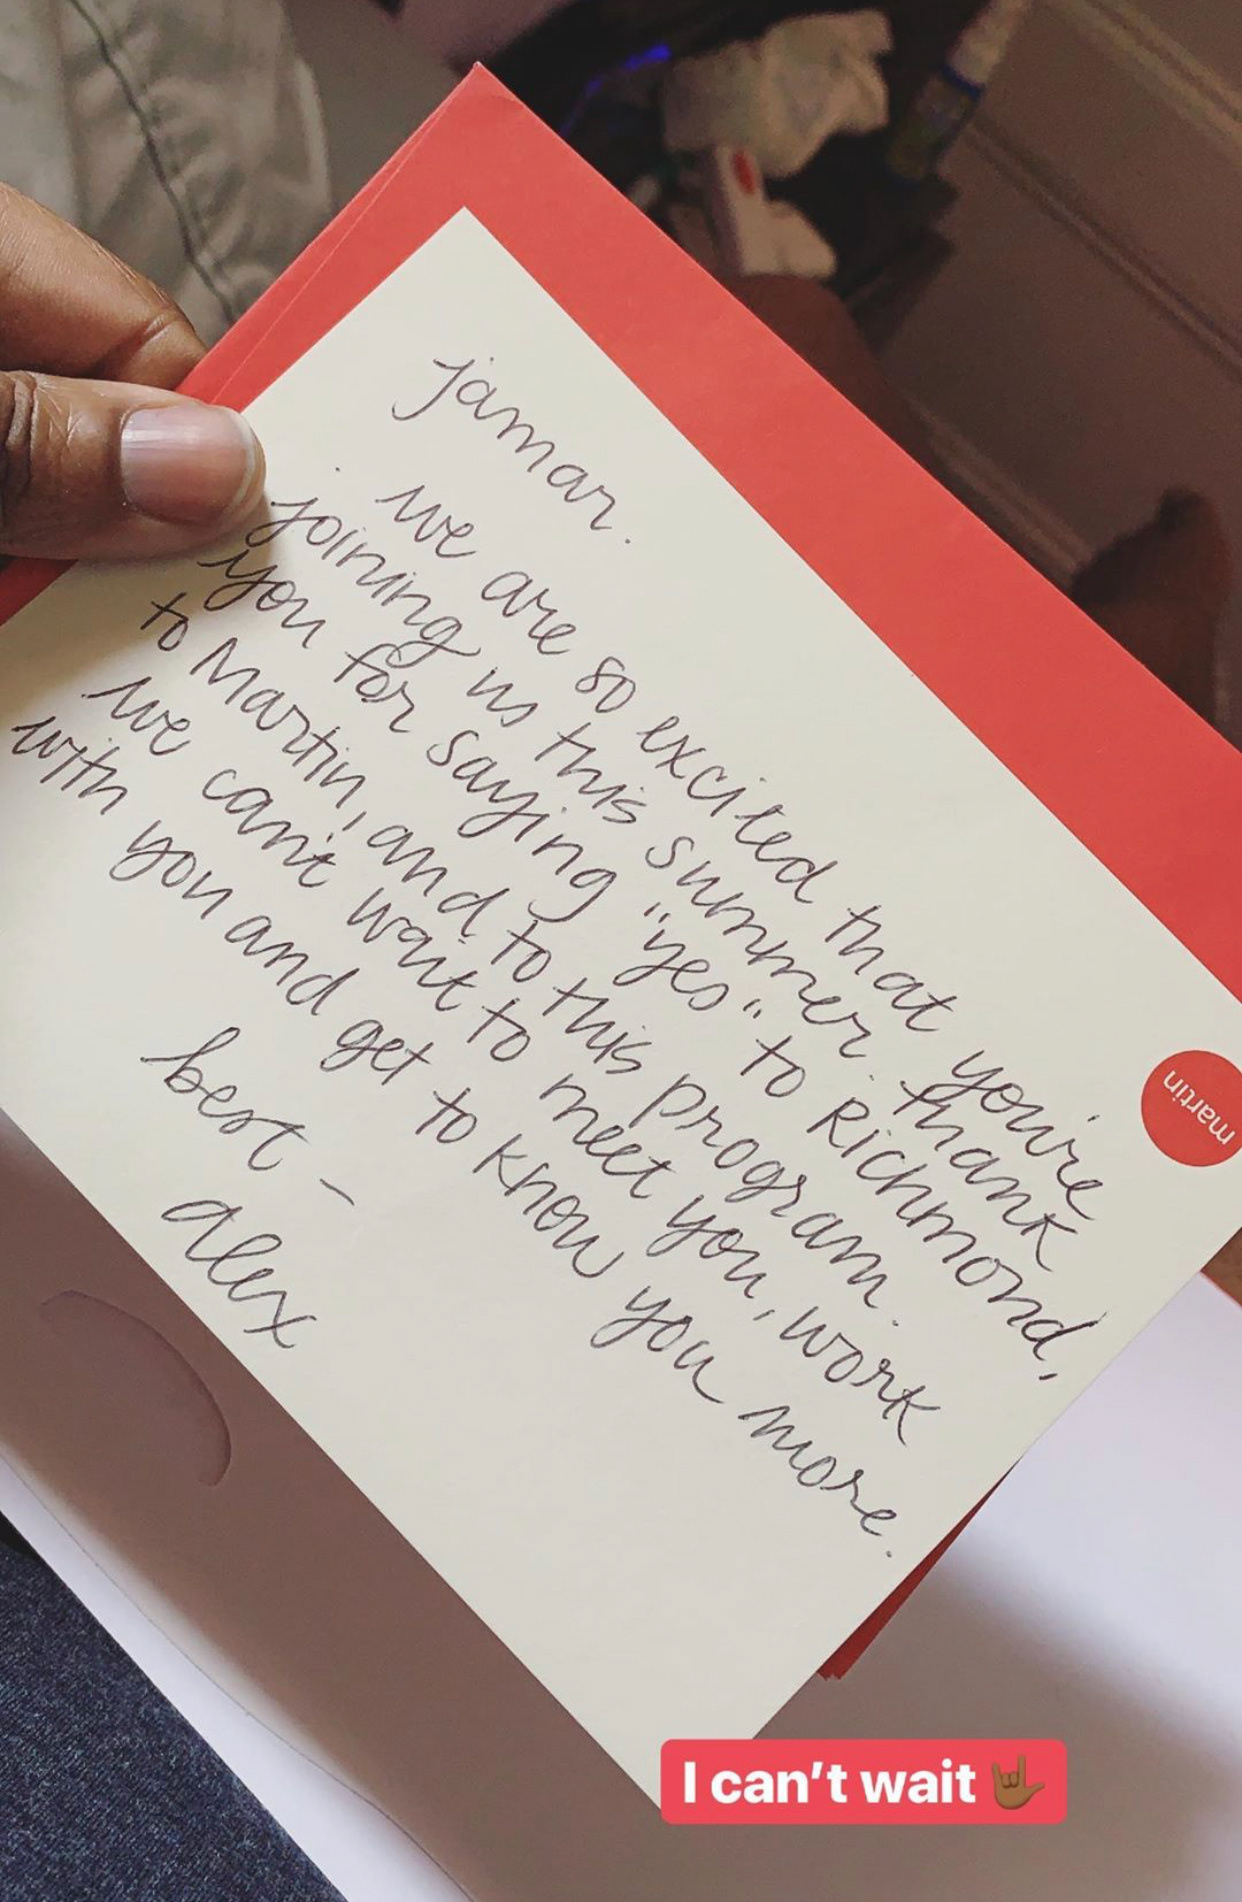 jamar.
we are so excited that you're
joining us this summer. thank
you for saying "yes" to Richmond,
to Martin, and to this program.
we can't wait to meet you, work
with you and get to know you more.
best –
alex
martin
I can't wait 🤟🏾